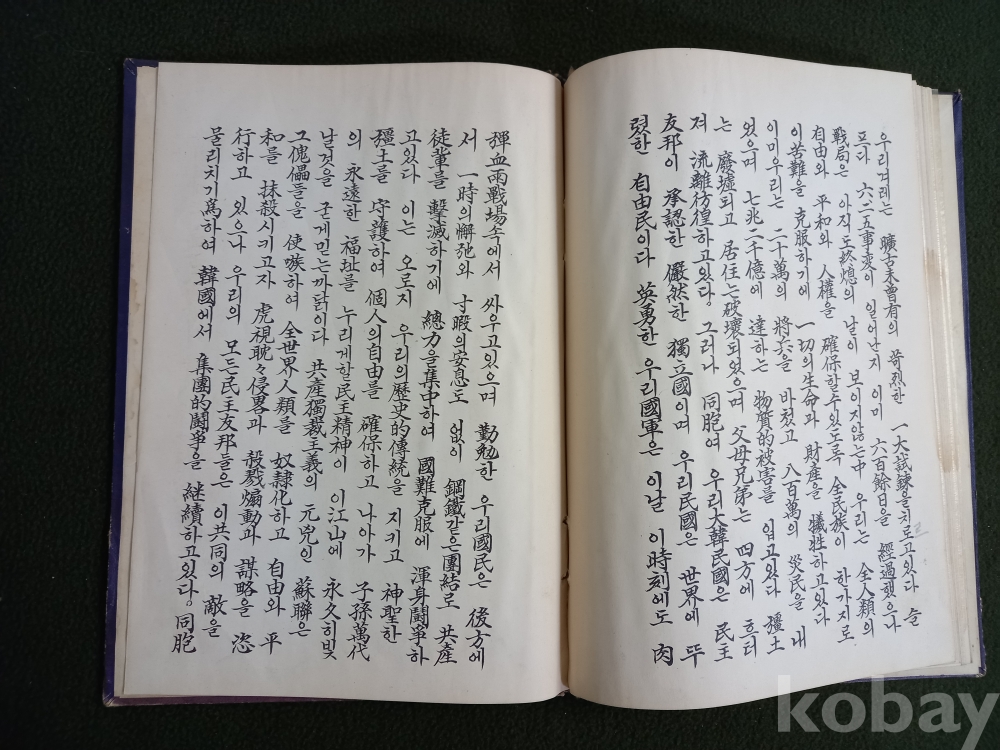 우리겨레는 曠古未曾有의 苛烈한 一大試鍊을치로고있다 슬
프다 六二五事変이 일어난지 이미 六百餘日을 經過했으나
戰局은 아직도終熄의 날이 보이지않는中 우리는 全人類의
自由와 平和와 人權을 確保할수있도록 全民族이 한가지로
이苦難을 克服하기에 一切의生命과 財產을 犧牲하고있다
이미우리는 二十萬의 將兵을 바쳤고 八百萬의 災民을 내
었으며 七兆二千億에 達하는 物質的被害를 입고있다 疆土
는 廢墟되고 居住는破壞되었으며 父母兄弟는 四方에 흐터
져 流離彷徨하고있다 그러나 同胞여 우리大韓民國은 民主
友邦이 承認한 儼然한 獨立國이며 우리民國은 世界에 뚜
렸한 自由民이다 英勇한 우리國軍은 이날 이時刻에도 肉
彈血雨戰場속에서 싸우고있으며 勤勉한 우리國民은 後方에
서 一時의懈弛와 寸暇의安息도 없이 鋼鐵같은團結로 共產
徒輩를 擊滅하기에 總力을集中하여 國難克服에 渾身鬪爭하
고있다 이는 오로지 우리의歷史的傳統을 지키고 神聖한
疆土를 守護하여 個人의自由를 確保하고 나아가 子孫萬代
의 永遠한 福址를 누리게할民主精神이 이江山에 永久히빛
날것을 굳게믿는까닭이다 共產獨裁主義의 元兇인 蘇聯은
그傀儡들을 使嗾하여 全世界人類를 奴隷化하고 自由와 平
和를 抹殺시키고자 虎視耽々侵畧과 殺戮煽動과 謀略을 恣
行하고 있으나 우리의 모든民主友邦들은 이共同의 敵을
물리치기爲하여 韓國에서 集團的鬪爭을 継續하고있다 同胞
kobay